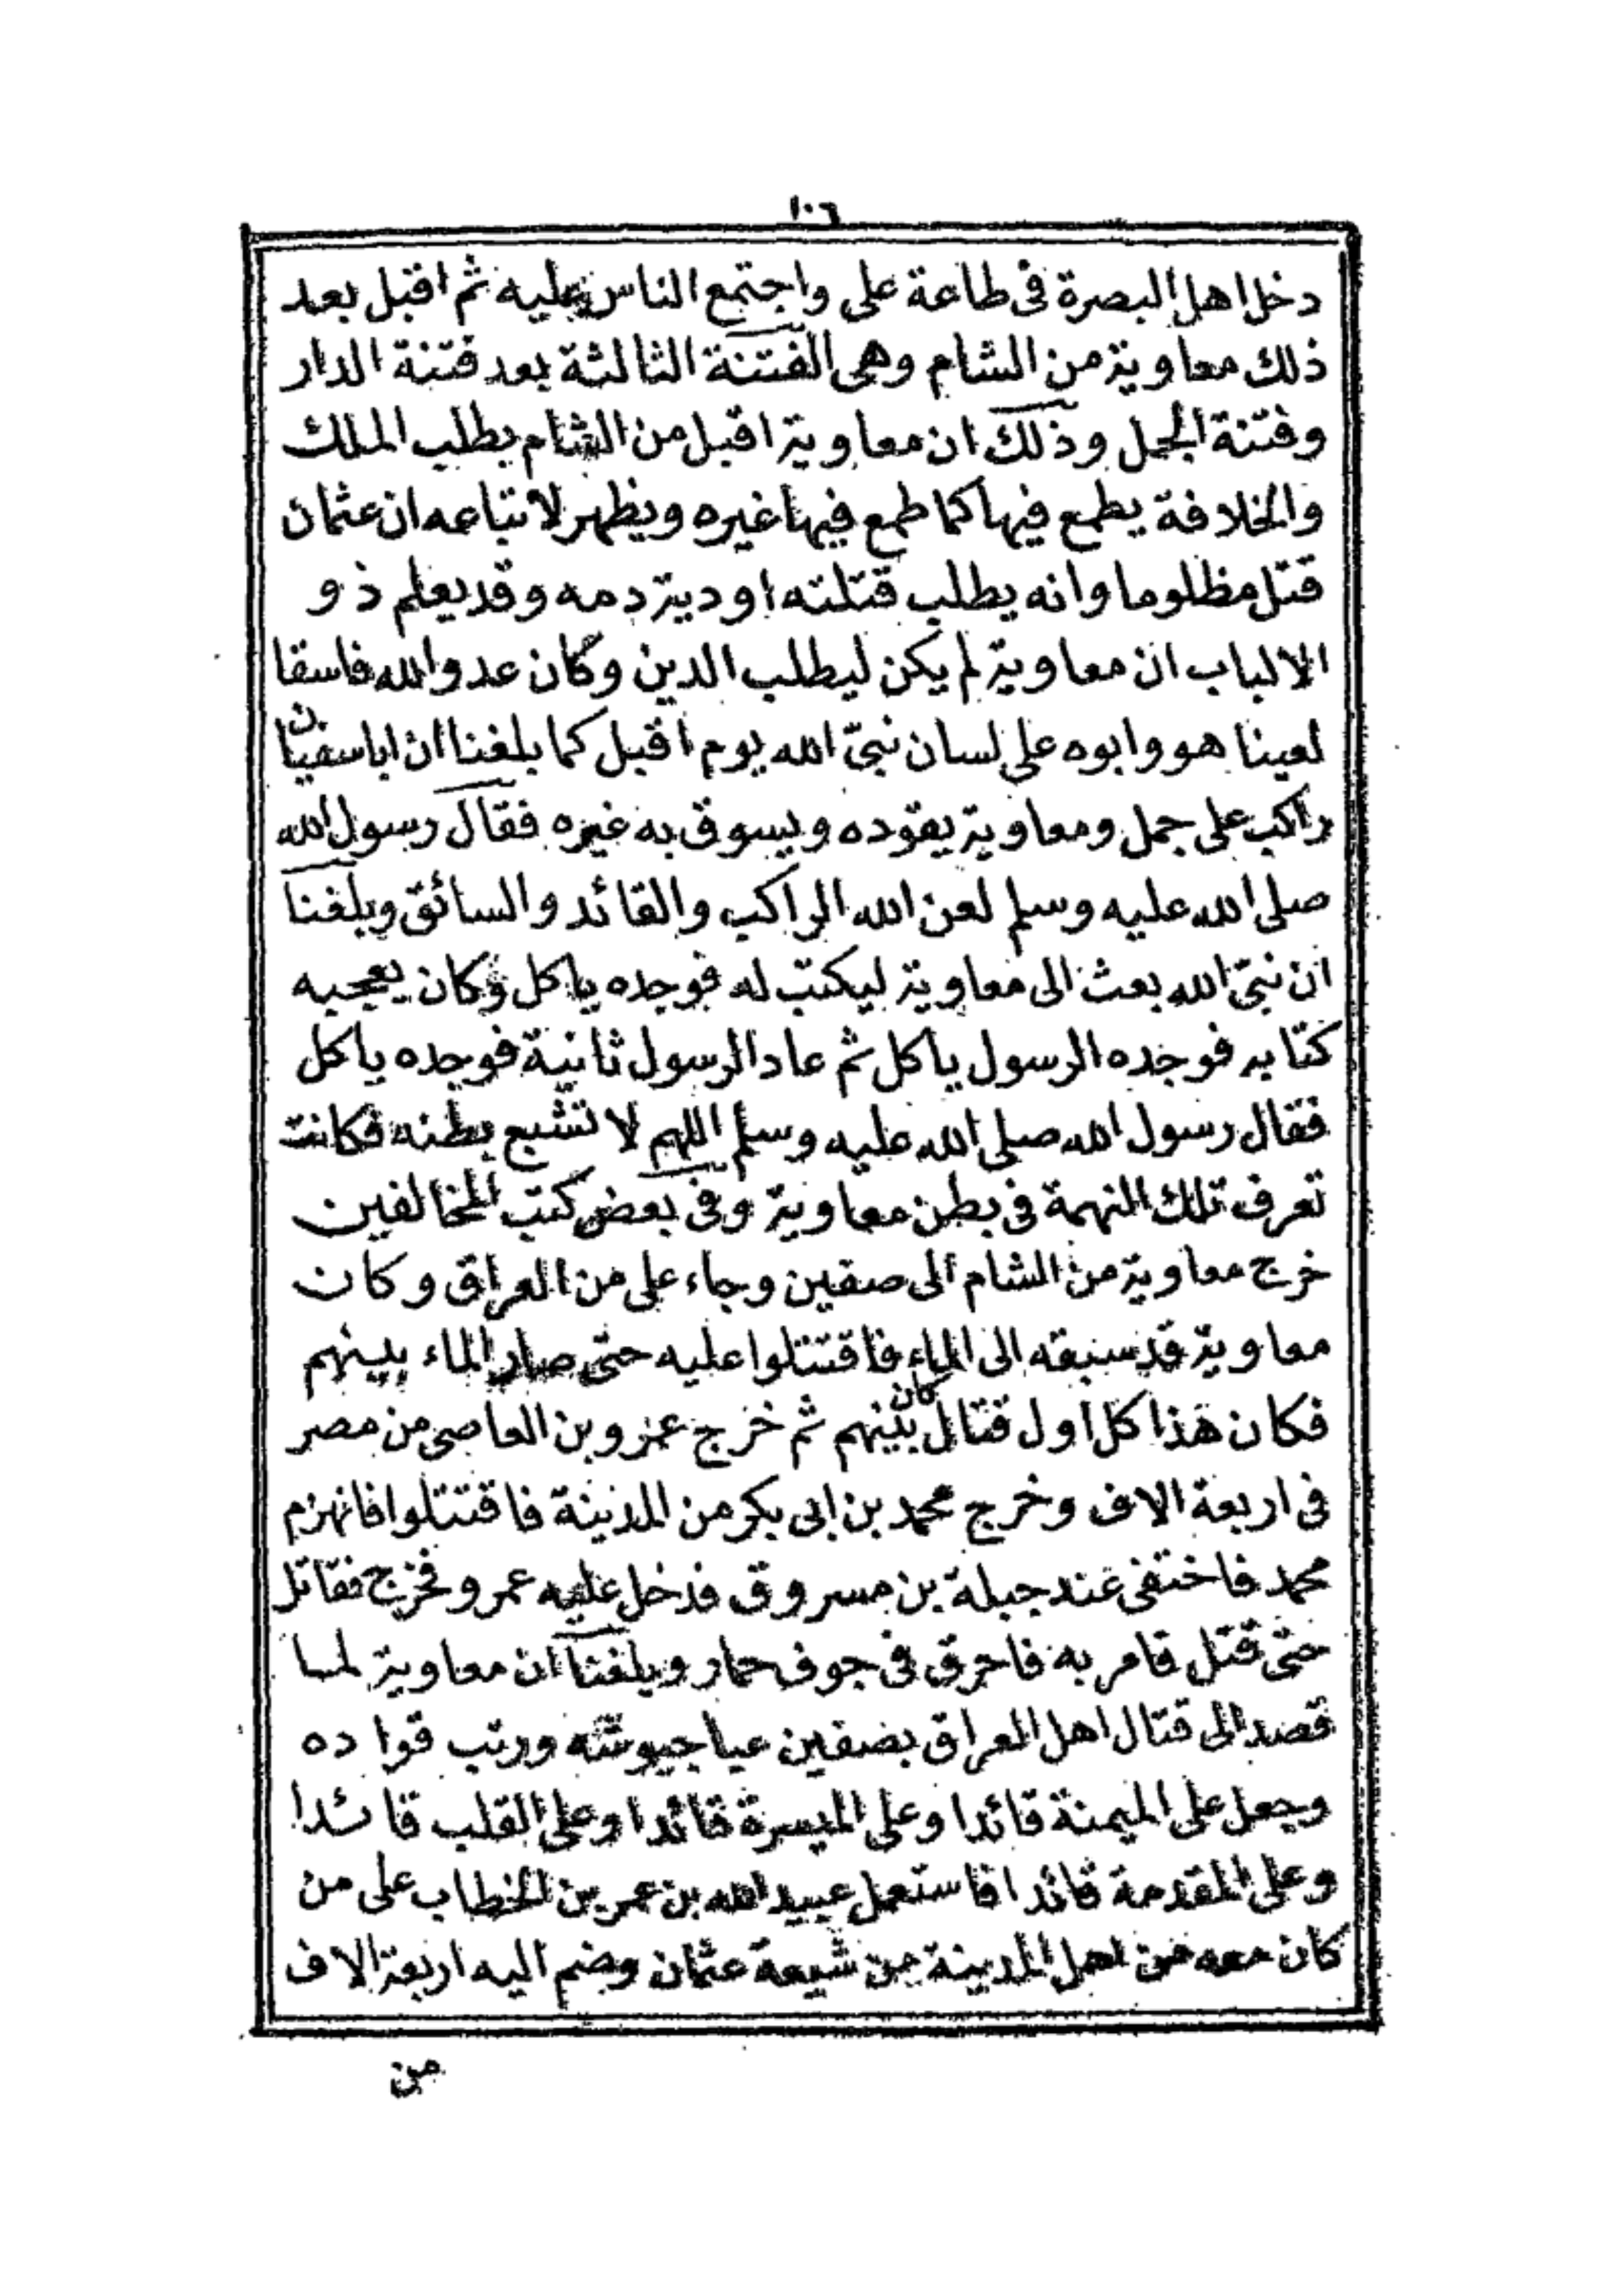 ١٠٦
دخل اهل البصرة فى طاعة على واجتمع الناس عليه ثم اقبل بعد
ذلك معاوية من الشام وهى الفتنة الثالثة بعد فتنة الدار
وفتنة الجمل وذلك ان معاوية اقبل من الشام يطلب الملك
والخلافة يطمع فيها كما طمع فيها غيره ويظهر لاتباعه ان عثمان
قتل مظلوما وانه يطلب قتلته او دية دمه وقد يعلم ذو
الالباب ان معاوية لم يكن ليطلب الدين وكان عدوالله فاسقا
لعينا هو وابوه على لسان نبىّ الله يوم اقبل كما بلغنا ان اباسفيان
راكب على جمل ومعاوية يقوده ويسوق به غيره فقال رسول الله
صلى الله عليه وسلم لعن الله الراكب والقائد والسائق وبلغنا
ان نبىّ الله بعث الى معاوية ليكتب له فوجده ياكل وكان يعجبه
كتابه فوجده الرسول ياكل ثم عاد الرسول ثانية فوجده ياكل
فقال رسول الله صلى الله عليه وسلم اللهم لا تشبع بطنه فكانت
تعرف تلك النهمة فى بطن معاوية وفى بعض كتب المخالفين
خرج معاوية من الشام الى صفين وجاء على من العراق وكان
معاوية قد سبقه الى الماء فاقتتلوا عليه حتى صار الماء بينهم
فكان هذا كل اول قتال كان بينهم ثم خرج عمرو بن العاصى من مصر
فى اربعة الاف وخرج محمد بن ابى بكر من المدينة فاقتتلوا فانهزم
محمد فاختفى عند جبلة بن مسروق فدخل عليه عمرو فخرج فقاتل
حتى قتل فامر به فاحرق فى جوف حمار وبلغنا ان معاوية لما
قصد الى قتال اهل العراق بصفين عبا جيوشه ورتب قواده
وجعل على الميمنة قائدا وعلى الميسرة قائدا وعلى القلب قائدا
وعلى المقدمة قائدا فاستعمل عبيد الله بن عمر بن الخطاب على من
كان معه من اهل المدينة من شيعة عثمان وضم اليه اربعة الاف
من